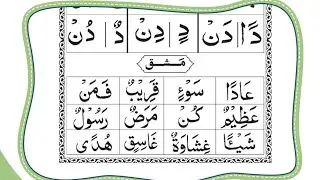 دًا دَنْ دٍ دِنْ دٌ دُنْ
مشق
عَادًا سَوْءٍ قَرِيْبٌ فَمَنْ
عَظِيْمٌ كُنْ مَرَضٌ رَسُوْلٌ
شَيْـًٔا غِشَاوَةٌ غَاسِقٍ هُدًى